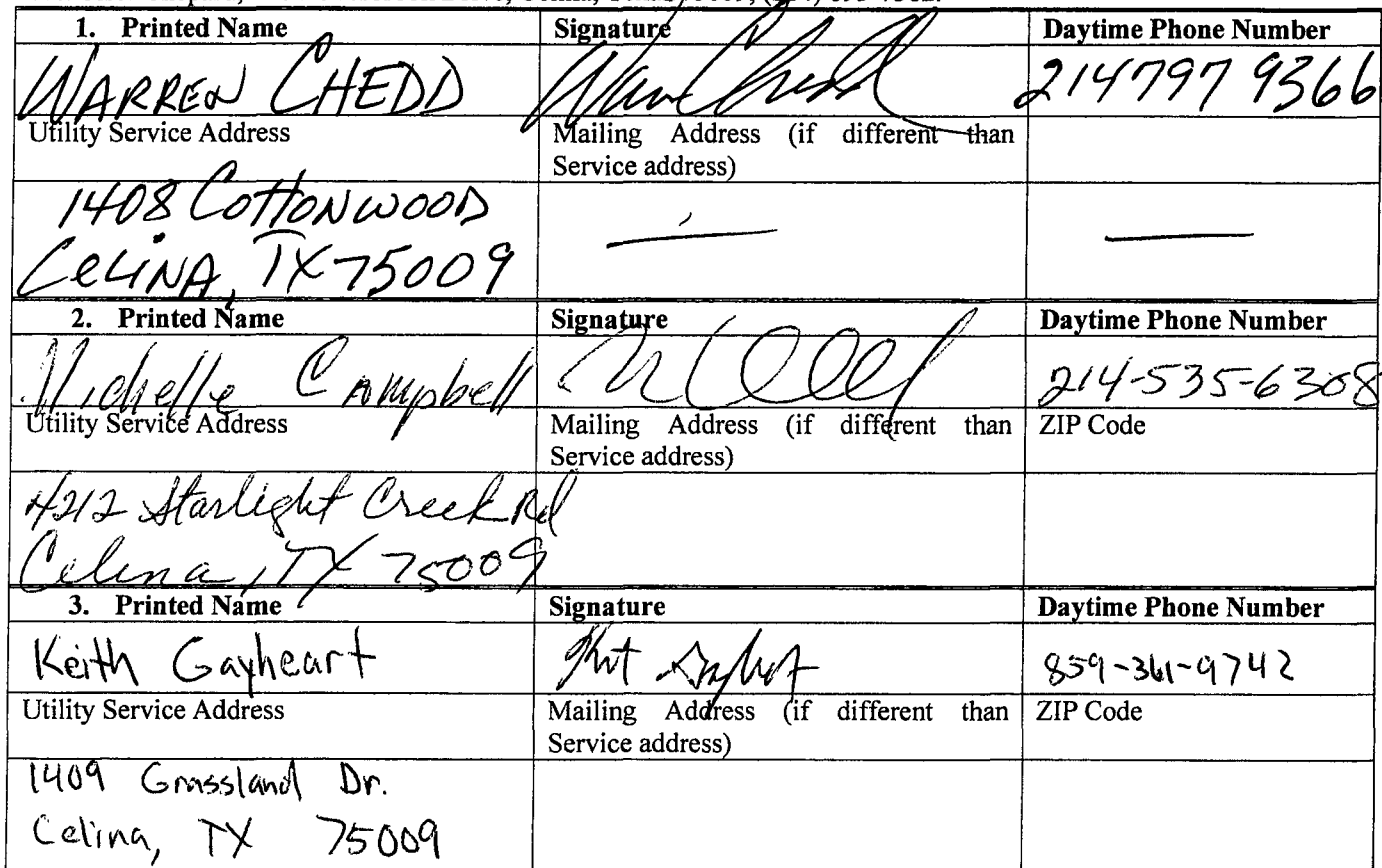 1. Printed Name Signature Daytime Phone Number
WARREN CHEDD 214 797 9366
Utility Service Address Mailing Address (if different than
Service address)
1408 COTTONWOOD — —
CELINA, TX 75009
2. Printed Name Signature Daytime Phone Number
Michelle Campbell 214-535-6308
Utility Service Address Mailing Address (if different than ZIP Code
Service address)
4212 Starlight Creek Rd
Celina, TX 75009
3. Printed Name Signature Daytime Phone Number
Keith Gayheart 859-361-9742
Utility Service Address Mailing Address (if different than ZIP Code
Service address)
1409 Grassland Dr.
Celina, TX 75009